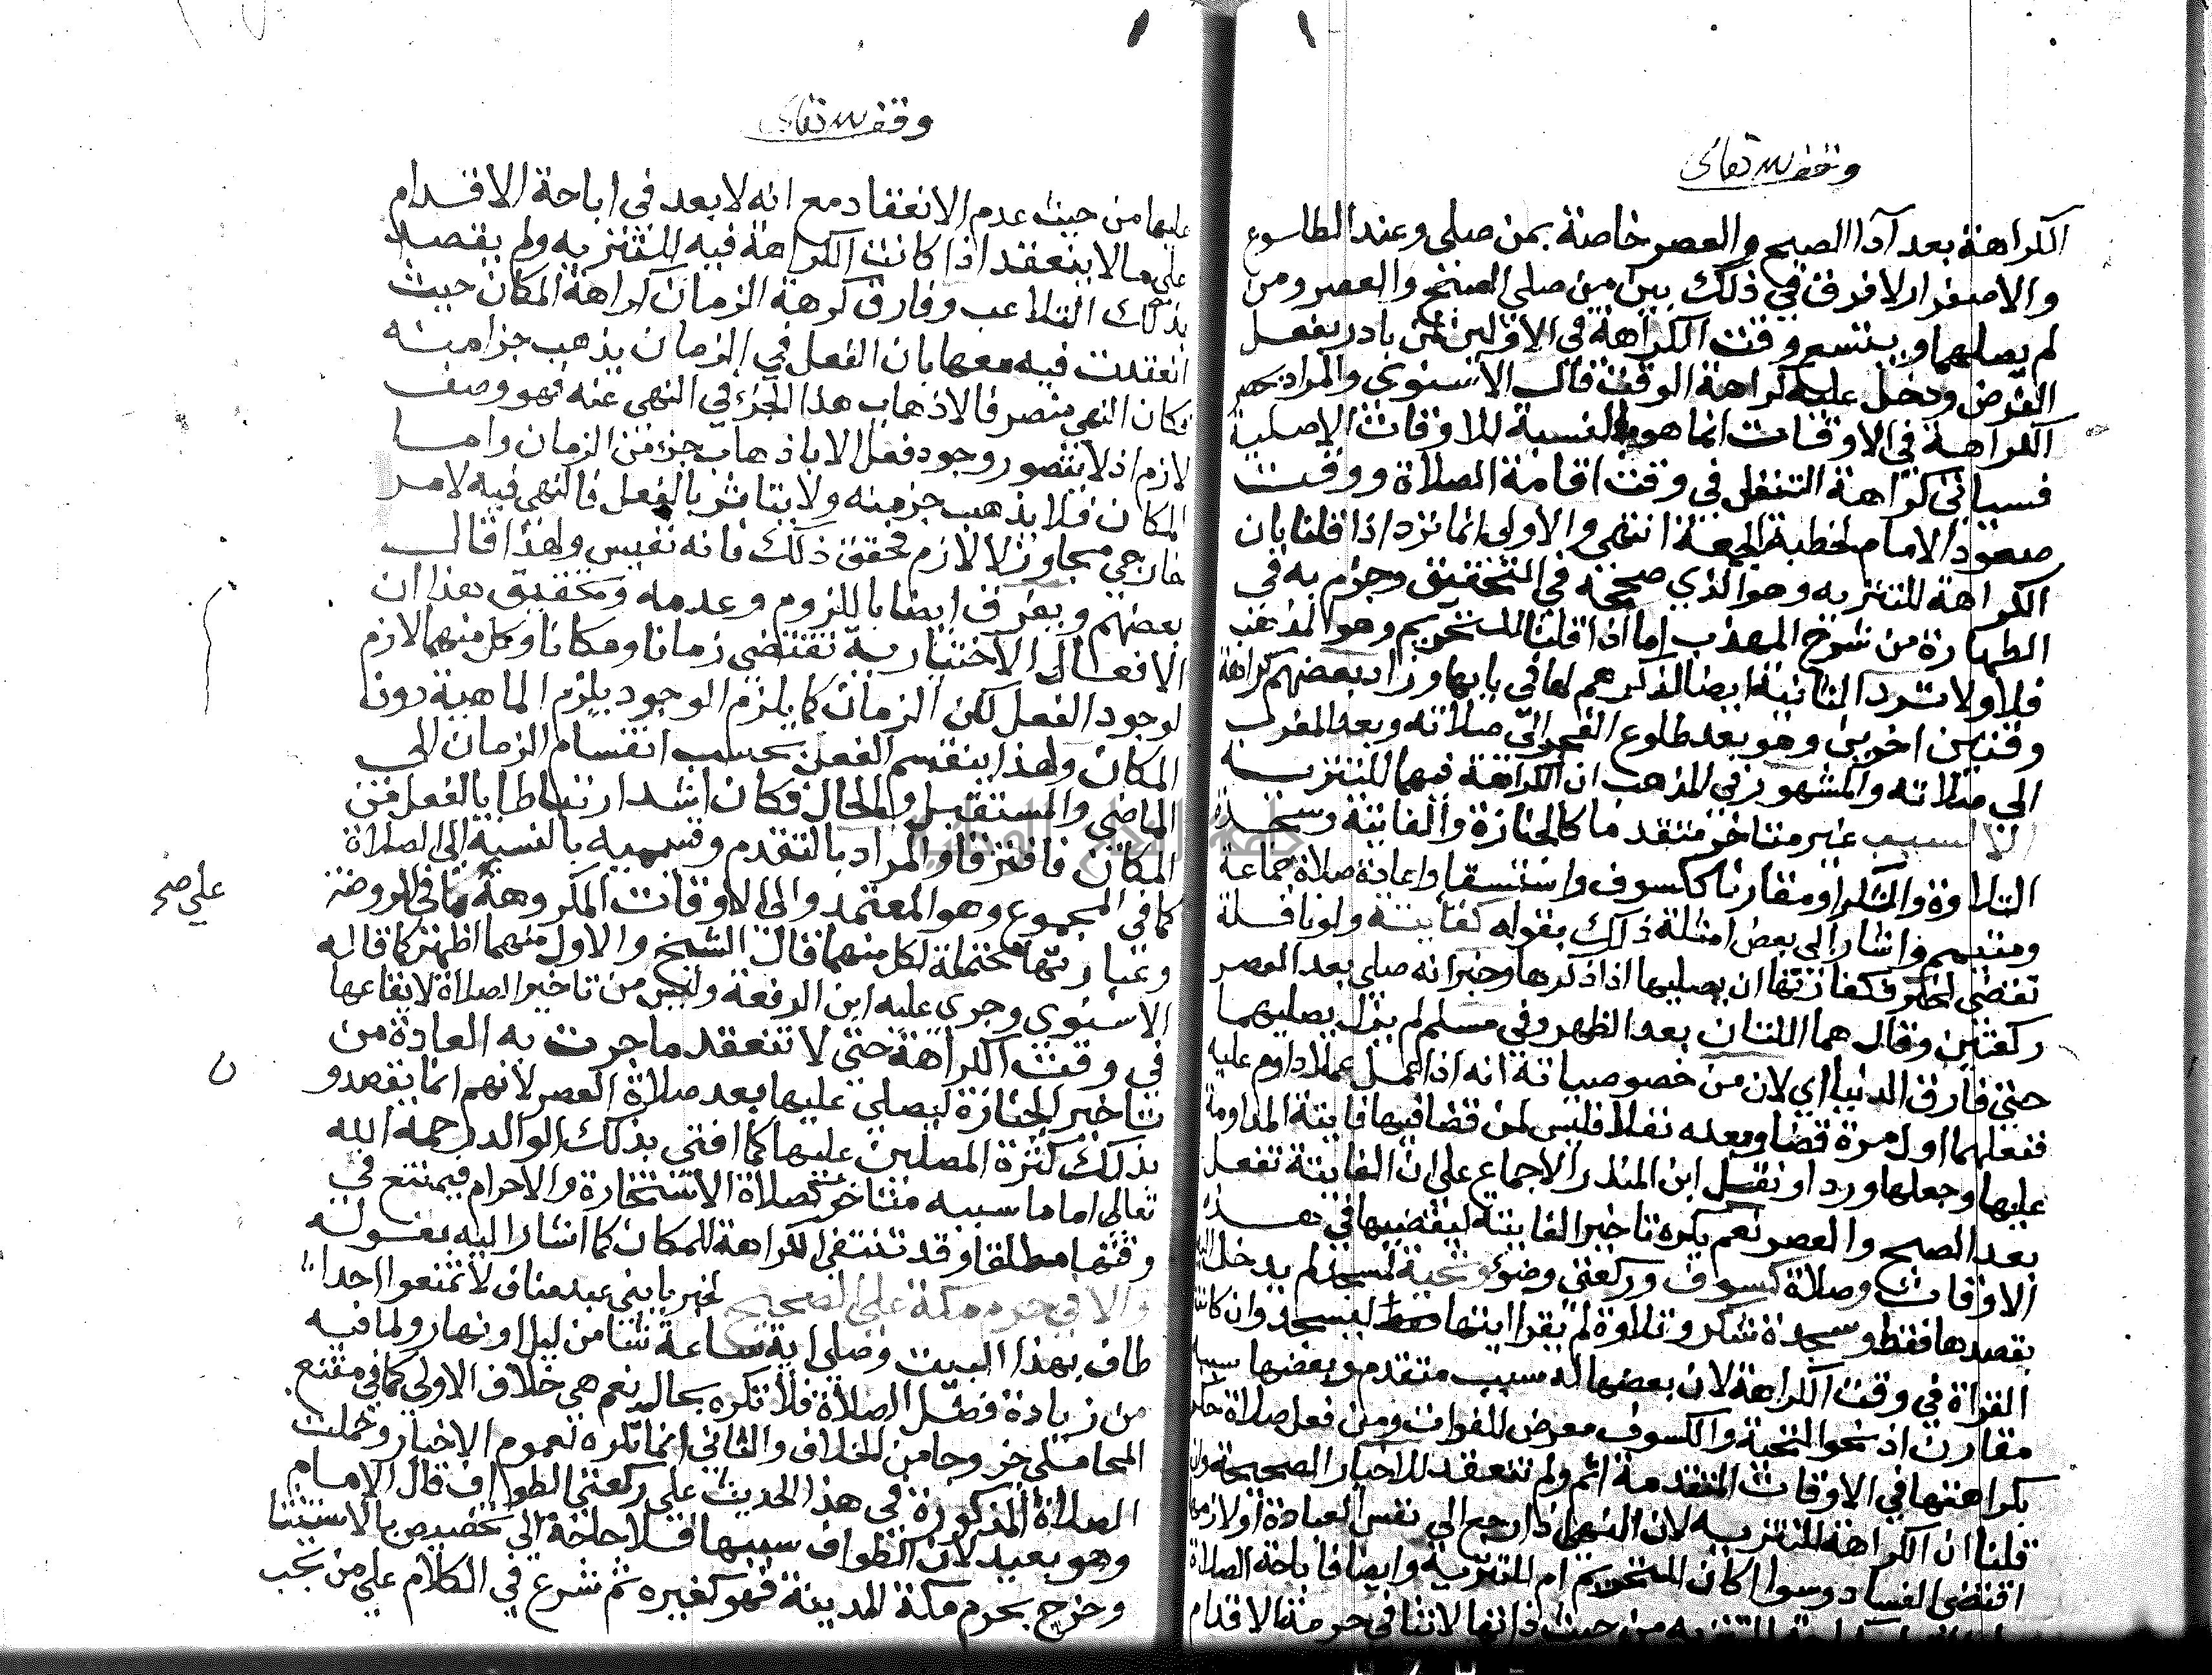 وقف لله تعالى
الكراهة بعد آدا الصبح والعصر خاصة بمن صلى وعند الطلوع
والاصفرار لا فرق في ذلك بين من صلى الصبح والعصر ومن
لم يصليهما ويتسع وقت الكراهة في الاولين لمن بادر بفعل
الفرض ودخل عليه كراهة الوقت قال الاسنوي والمراد بحصر
الكراهة في الاوقات انما هو بالنسبة للاوقات الاصلية
فسياتي كراهة التنفل في وقت اقامة الصلاة ووقت
صعود الامام لخطبة الجمعة انتهى والاولى انما ترد اذا قلنا بان
الكراهة للتنزيه وهو الذي صححه في التحقيق وجزم به في
الطهارة من شرح المهذب اما اذا قلنا للتحريم وهو المذهب
فلا ولا ترد الثانية ايضا لذكرهم لها في بابها وزاد بعضهم كراهة
وقتين اخرين وهو بعد طلوع الفجر الى صلاته وبعد المغرب
الى صلاته والمشهور في المذهب ان الكراهة فيهما للتنزيه
الا لسبب غير متاخر متقدما كالجنازة والفايتة وسجدة
التلاوة والشكر او مقارنا ككسوف واستسقا واعادة صلاة جماعة
ومتيمم واشار الى بعض امثلة ذلك بقوله كفايتة ولو نافلة
تقضى لخبر فكفارتها ان يصليها اذا ذكرها وخبر انه صلى بعد العصر
ركعتين وقال هما اللتان بعد الظهر وفي مسلم لم يزل يصليهما
حتى فارق الدنيا اي لان من خصوصياته انه اذا عمل عملا داوم عليه
ففعلهما اول مرة قضا وبعده نفلا فليس لمن قضا فيها فايتة المداومة
عليها وجعلها وردا ونقل ابن المنذر الاجماع على ان الفايتة تفعل
بعد الصبح والعصر نعم يكره تاخير الفايتة ليقضيها في هذه
الاوقات وصلاة كسوف وركعتي وضوء وتحية لمسجد لم يدخل اليه
بقصدها فقط وسجدة شكر وتلاوة لم يقرا ايتها فقط ليسجد وان كانت
القراة في وقت الكراهة لان بعضها له سبب متقدم وبعضها سببه
مقارن اذ نحو التحية والكسوف معرض للفوات ومن فعل صلاة حكم
بكراهتها في الاوقات المتقدمة اثم ولم تنعقد للاخبار الصحيحة وان
قلنا ان الكراهة للتنزيه لان النهي اذا رجع الى نفس العبادة او لازمها
اقتضى الفساد وسوا كان للتحريم ام للتنزيه وايضا فاباحة الصلاة
للتنزيه من حيث ذاتها لا تنافي حرمة الاقدام
وقف لله تعالى
عليها من حيث عدم الانعقاد مع انه لا بعد في اباحة الاقدام
على ما لا ينعقد اذا كانت الكراهة فيه للتنزيه ولم يقصد
بذلك التلاعب وفارق كرهة الزمان كراهة المكان حيث
انعقدت فيه معها بان الفعل في الزمان يذهب جزا منه
فكان النهي منصرفا لاذهاب هذا الجزء في النهي عنه فهو وصف
لازم اذ لا يتصور وجود فعل الا باذهاب جزء من الزمان واما
المكان فلا يذهب جزء منه ولا يتاثر بالفعل فالنهي فيه لامر
خارجي مجاور لا لازم فحقق ذلك فانه نفيس ولهذا قال
بعضهم ويفرق ايضا باللزوم وعدمه وتحقيق هذا ان
الافعال الاختيارية تقتضي زمانا ومكانا وكل منهما لازم
لوجود الفعل لكن الزمان كما يلزم الوجود يلزم الماهية دون
المكان ولهذا ينقسم الفعل بحسب انقسام الزمان الى
الماضي والمستقبل والحال فكان اشد ارتباطا بالفعل من
المكان فافترقا والمراد بالتقدم وقسميه بالنسبة الى الصلاة
كما في المجموع وهو المعتمد والى الاوقات المكروهة ما في الروضة
على صح
وعبارتها محتملة لكل منهما قال الشيخ والاول منهما اظهر كما قاله
الاسنوي وجرى عليه ابن الرفعة وليس من تاخير الصلاة لايقاعها
في وقت الكراهة حتى لا تنعقد ما جرت به العادة من
تاخير الجنازة ليصلى عليها بعد صلاة العصر لانهم انما يقصدو
ن
بذلك كثرة المصلين عليها كما افتى بذلك الوالد رحمه الله
تعالى اما ما سببه متاخر كصلاة الاستخارة والاحرام فيمتنع في
وقتها مطلقا وقد تنتفي الكراهة للمكان كما اشار اليه بقوله
والا في حرم مكة على الصحيح لخبر يا بني عبد مناف لا تمنعوا احدا
طاف بهذا البيت وصلى اية ساعة شا من ليل او نهار ولما فيه
من زيادة فضل الصلاة فلا تكره بحال نعم هي خلاف الاولى كما في مقنع
المحاملي خروجا من الخلاف والثاني انما تكره لعموم الاخبار وحملت
الصلاة المذكورة في هذا الحديث على ركعتي الطواف قال الامام
وهو بعيد لان الطواف سببها فلا حاجة الى تخصيص بالاستثنا
وخرج بحرم مكة المدينة فهو كغيره ثم شرع في الكلام على من تجب